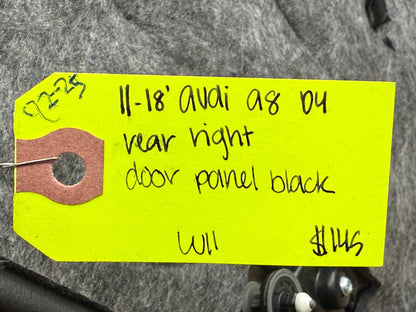 92-25
11-18' audi a8 D4
rear right
door panel black
W11 $145